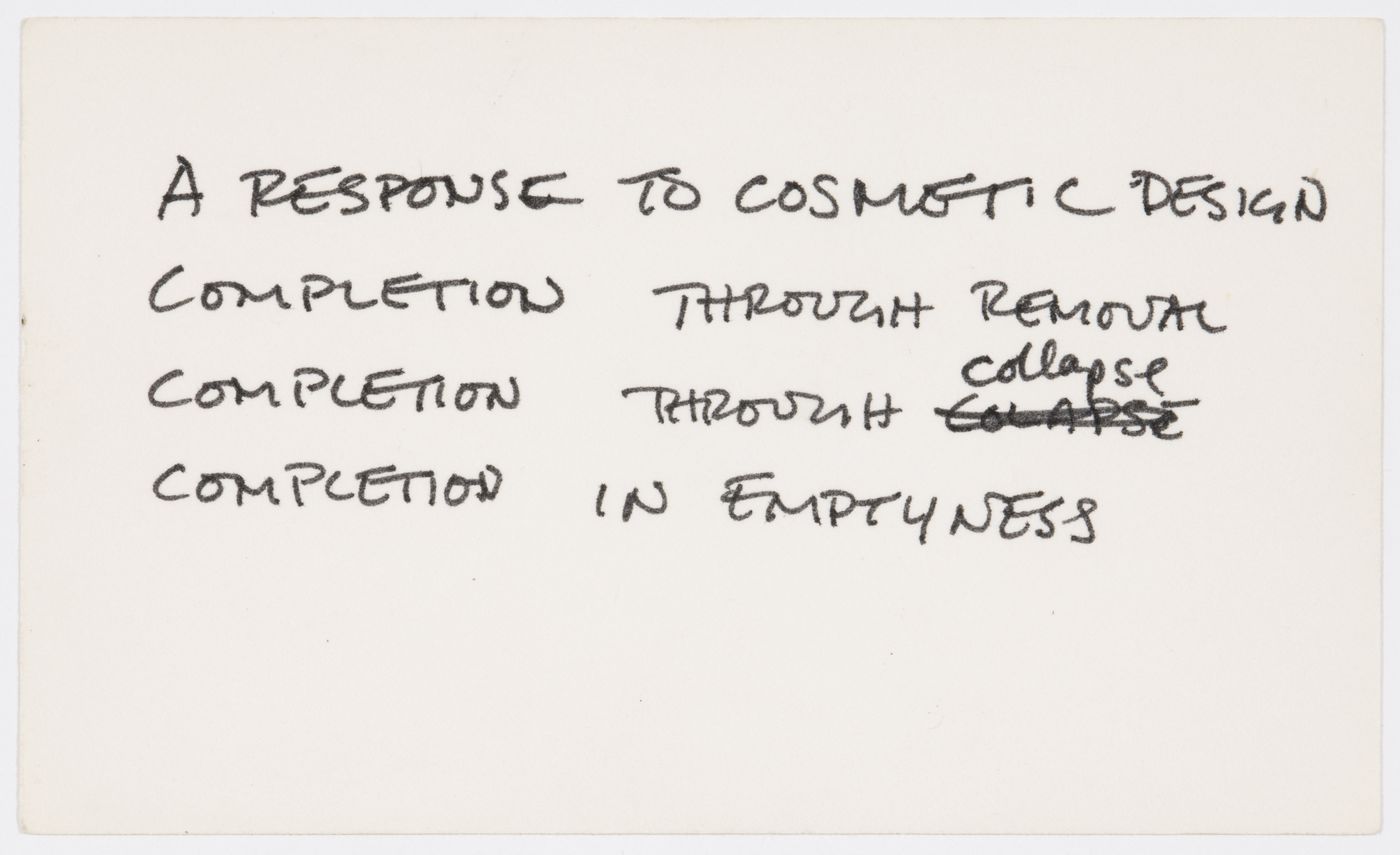 A RESPONSE TO COSMETIC DESIGN
COMPLETION THROUGH REMOVAL
collapse
COMPLETION THROUGH COLAPSE
COMPLETION IN EMPTYNESS